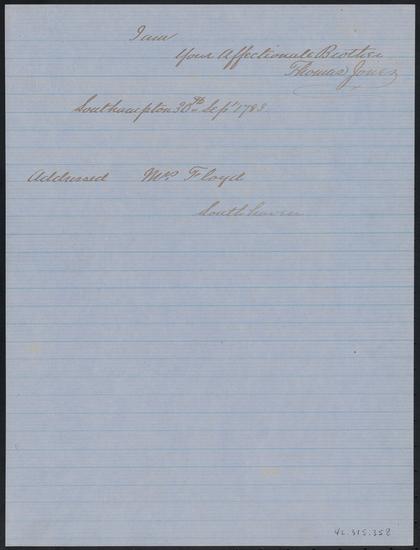 I am
Your Affectionate Brother
Thomas Jones
Southampton 30th Sept 1783
Addressed Mrs. Floyd
South haven
42.315.358